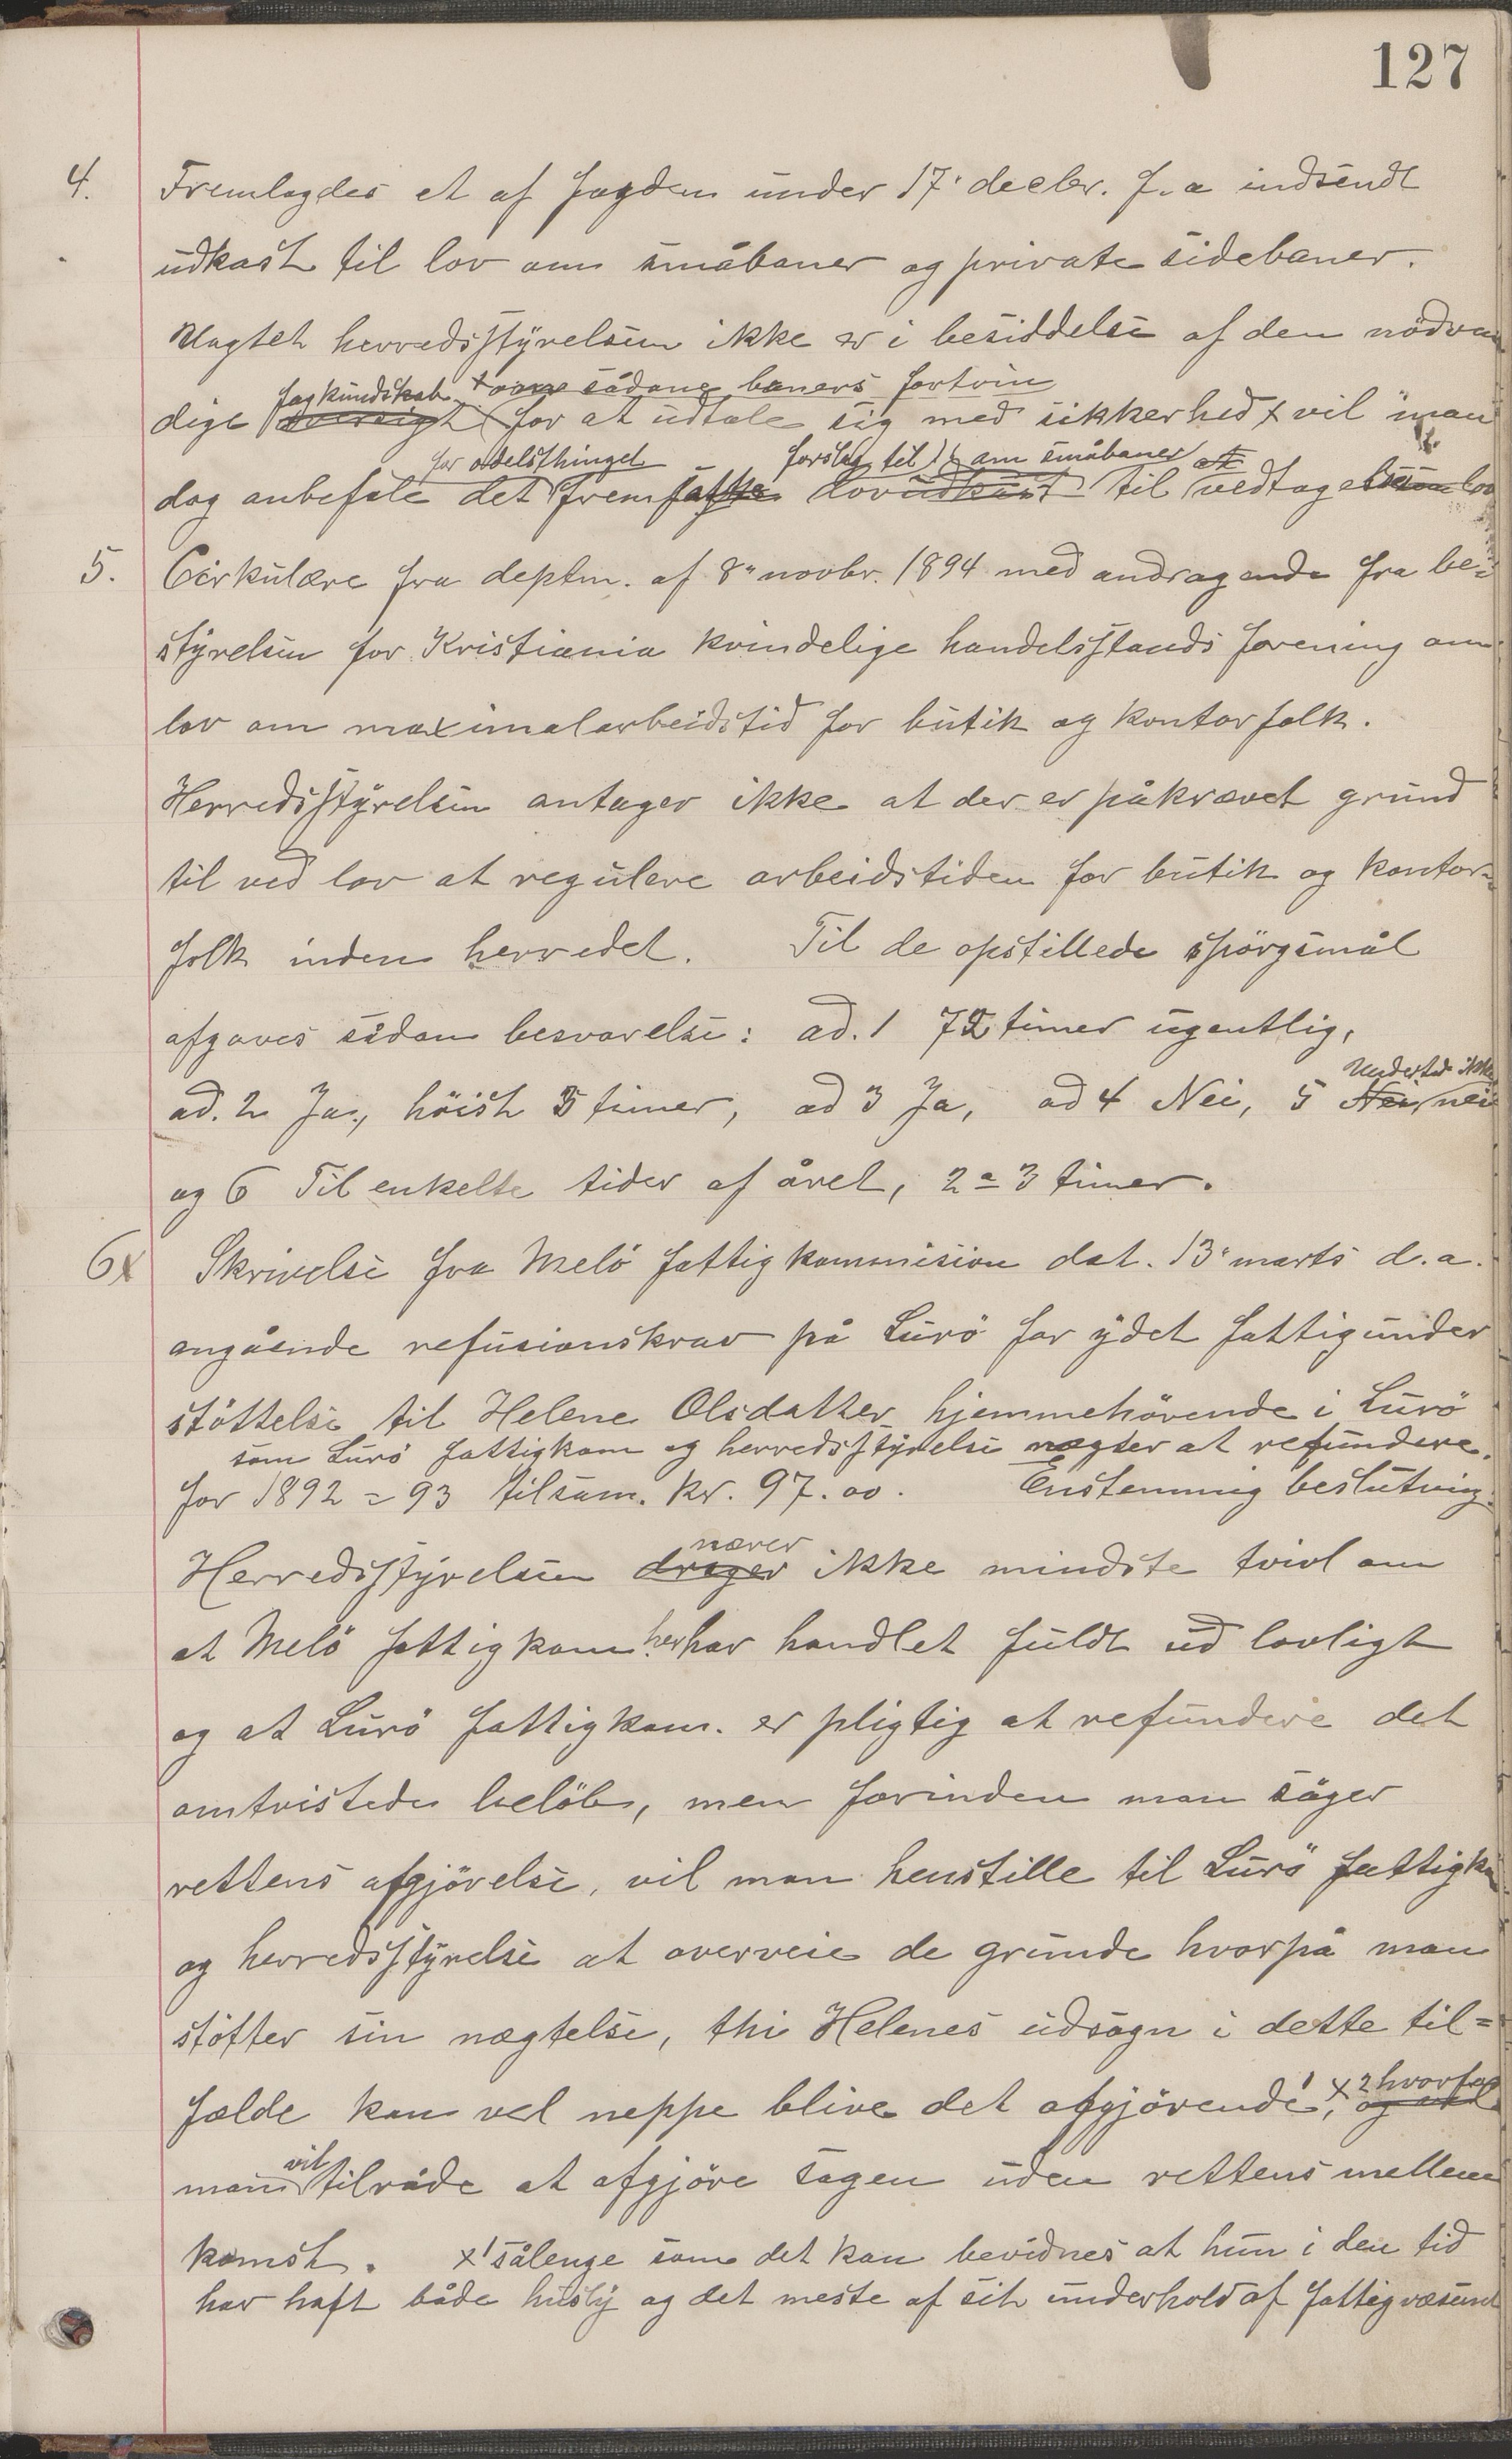 127
4. Fremlagdes et af fogden under 17' decbr. f.a indsendt
udkast til lov om småbaner og private sidebaner.
Uagtet herredsstyrelsen ikke er i besiddelse af den nödven
fagkundskab + om sådane baners fortrin
dige oversigt for at udtale sig med sikkerhed + vil man
for odelsthinget forslag til om småbaner at
dog anbefale det fremsatte lovudkast til vedtagelse som lov
5. Cirkulære fra deptm. af 8" novbr. 1894 med andragende fra be=
styrelsen for Kristiania kvindelige handelsstands forening om
lov om maximalarbeidstid for butik og kontorfolk.
Herredsstyrelsen antager ikke at der er påkrævet grund
til ved lov at regulere arbeidstiden for butik og kontor=
folk inden herredet. Til de opstillede spörgsmål
afgaves sådan besvarelse: ad. 1 72 timer ugentlig,
Undertid ikke
ad. 2 Ja, höist 5 timer, ad 3 Ja, ad 4 Nei, 5 Nei, nei
og 6 Til enkelte tider af året, 2 a 3 timer.
6x Skrivelse fra Melö fattigkommision dat. 13' marts d.a.
angående refusionskrav på Lurö for ydet fattigunder
stöttelse til Helene Olsdatter hjemmehörende i Lurö
som Lurö fattigkom og herredsstyrelse nægter at refundere.
for 1892=93 tilsam. kr. 97.00. Enstemmig beslutning.
nærer
Herredsstyrelsen drager ikke mindste tvivl om
at Melö fattigkom. her har handlet fuldt ud lovligt
og at Lurö fattigkom. er pligtig at refundere det
omtvistede belöb, men forinden man söger
rettens afgjörelse, vil man henstille til Lurö fattigk
og herredsstyrelse at overveie de grunde hvorpå man
stötter sin nægtelse, thi Helenes udsagn i dette til=
x 2 hvorfor
fælde kan vel neppe blive det afgjörende', og vil
vil
man tilråde at afgjöre sagen uden rettens mellem
komst. x' sålenge som det kan bevidnes at hun i den tid
har haft både husly og det meste af sit underhold af fattigvæsenet